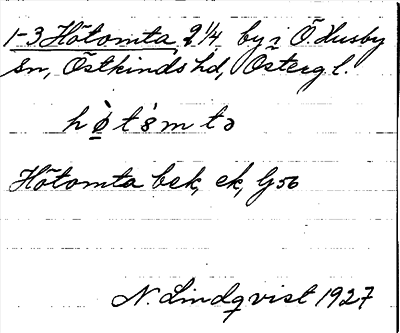 1-3 Hōtomta, 2 1/4 by i Ö. Husby
sn, Östkinds hd, Österg l.
hø̀tsmtə
Hōtomta bek, ek, G56
N. Lindqvist 1927